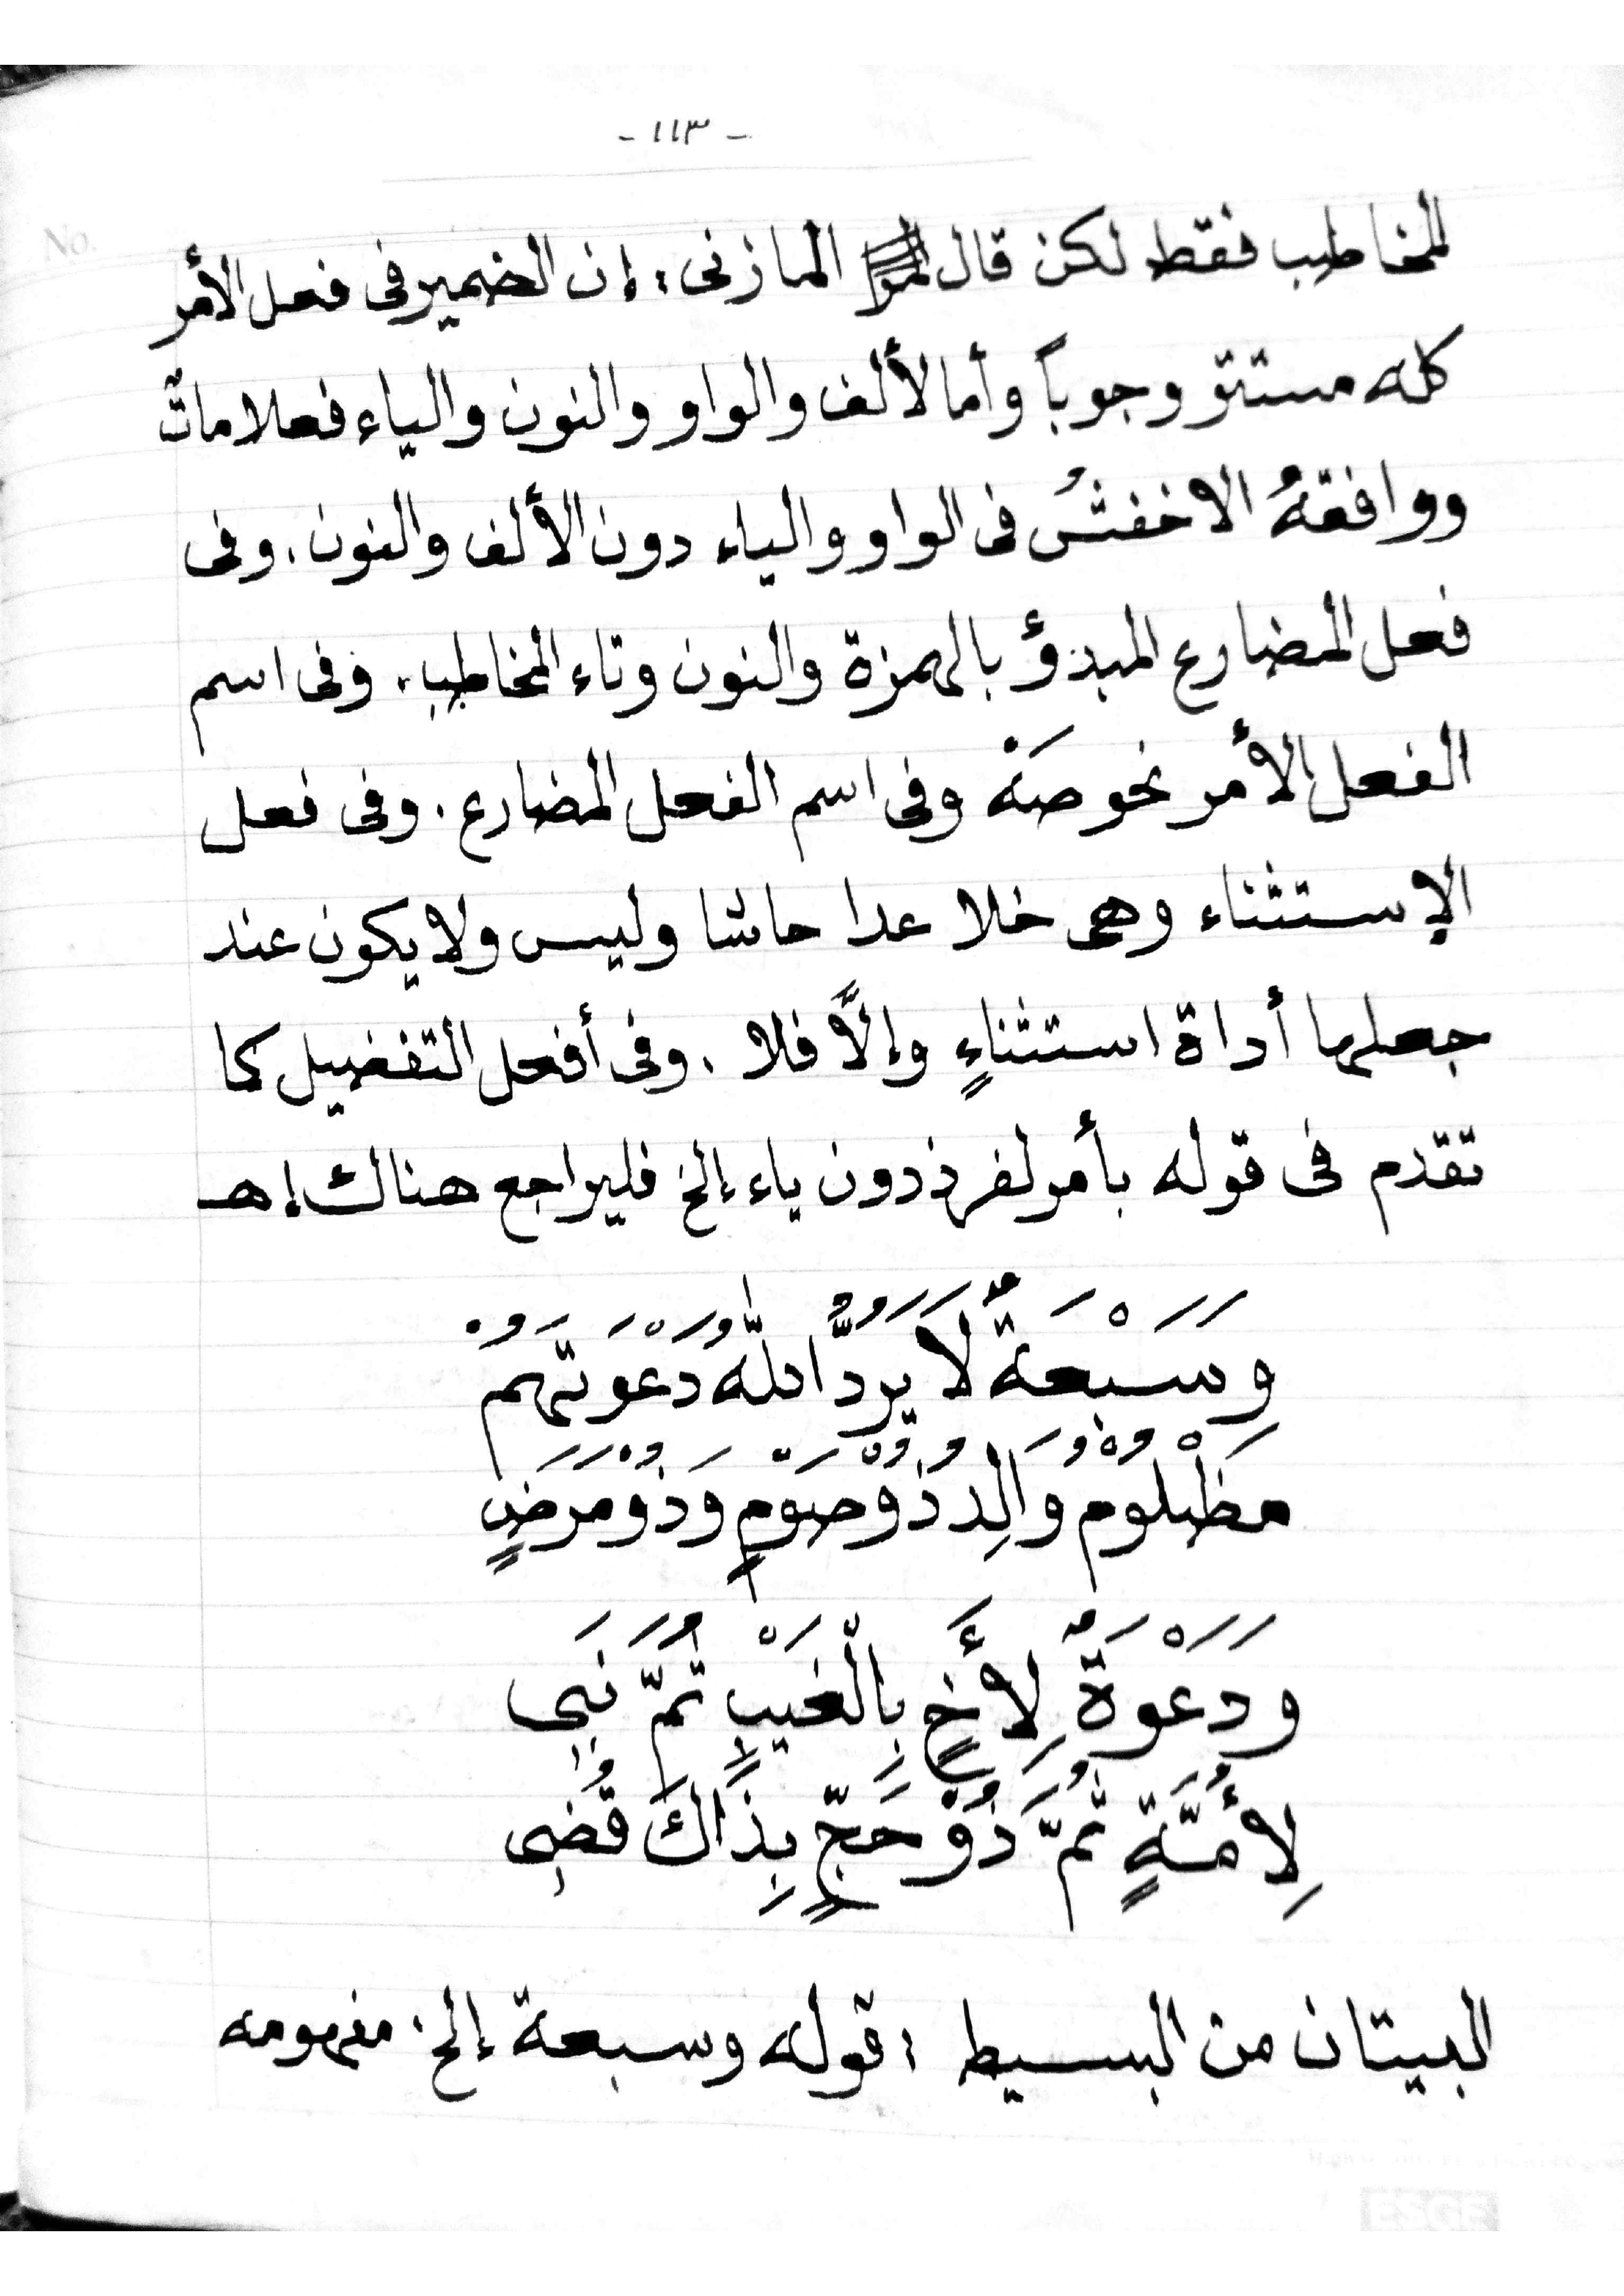 - ١١٣ -
No.
للمخاطب فقط لكن قال المازنى : إن الضمير فى فعل الأمر
كله مستتر وجوباً وأما لألف والواو والنون والياء فعلامات
ووافقهُ الاخفشُ فى الواو والياء دون الألف والنون . وفى
فعل المضارع المبدؤ بالهمزة والنون وتاء المخاطب . وفى اسم
الفعل الأمر نحو صَهْ وفى اسم الفعل المضارع . وفى فعل
الإستثناء وهى خلا عدا حاشا وليس ولا يكون عند
جعلها أداة استثناءٍ وإلاَّ فلا . وفى أفعل التفضيل كما
تقدم فى قوله بأمر لفرد دون ياء إلخ فليراجع هناك اهـ
وَسَبْعَةٌ لَا يَرُدُّ اللّٰهُ دَعْوَتَهُمْ
مَظْلُوْمُ وَالِدُ ذُوْ صَوْمٍ وَذُوْ مَرَضٍ
وَدَعْوَةٌ لِأَخٍ بِالْغَيْبِ ثُمَّ نَبِى
لِأُمَّةٍ ثُمَّ ذُوْ حَجٍّ بِذَاكَ قُضِى
البيتان من البسيط : قوله وسبعة إلخ . مفهومه
ESGE